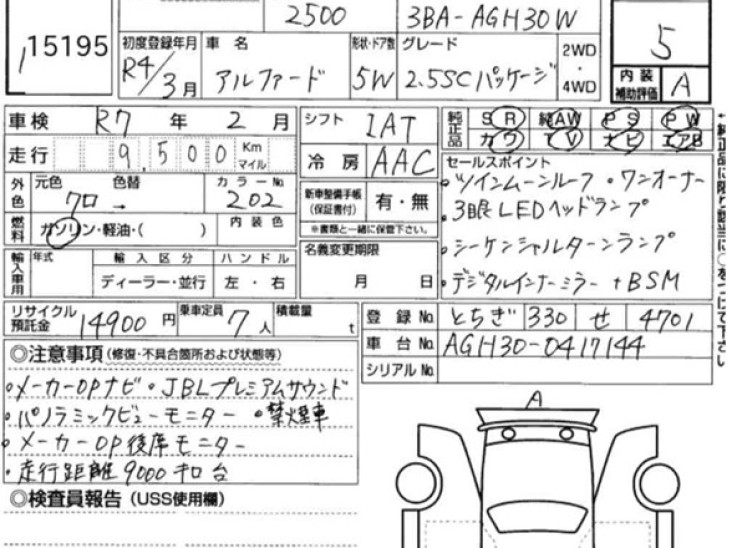 15195
2500 3BA-AGH30W
初度登録年月 車名 形状・ドア数 グレード 2WD・4WD
R4/3月 アルファード 5W 2.5SCパッケージ
5
内装補助評価 A
車検 R7年 2月 シフト IAT
純正品 SR 純AW PS PW
カワ TV ナビ エアB
走行 9,500 Km マイル 冷房 AAC
セールスポイント
・ツインムーンルーフ・ワンオーナー
・3眼LEDヘッドランプ
・シーケンシャルターンランプ
・デジタルインナーミラー+BSM
外色 元色 色替 カラーNo.
クロ → 202
新車整備手帳(保証書付) 有・無
※書類と一緒に保管下さい。
燃料 ガソリン・軽油・( ) 内装色
名義変更期限
月 日
輸入車用 年式 輸入区分 ハンドル
ディーラー・並行 左・右
リサイクル預託金 14900円 乗車定員 7人 積載量 t
登録No. とちぎ 330 せ 4701
車台No. AGH30-0417144
シリアルNo.
◎注意事項(修復・不具合箇所および状態等)
・メーカーOPナビ・JBLプレミアムサウンド
・パノラミックビューモニター ・禁煙車
・メーカーOP後席モニター
・走行距離9000キロ台
◎検査員報告(USS使用欄)
A